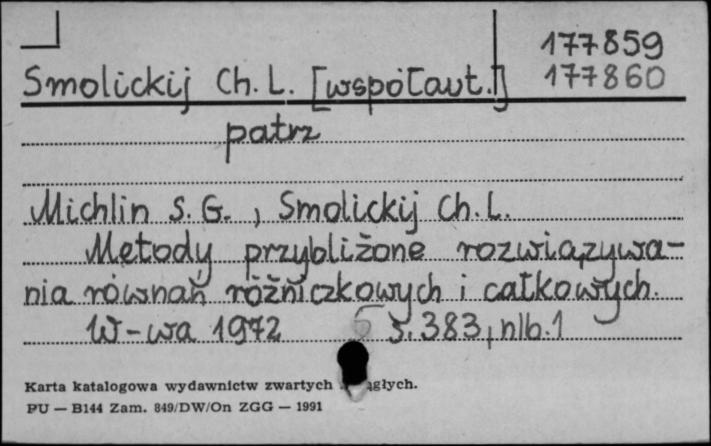 177859
Smolickij Ch. L. [współaut.] 177860
patrz
Michlin S. G., Smolickij Ch. L.
Metody przybliżone rozwiązywa-
nia równań różniczkowych i całkowych.
W-wa 1972 s. 383, nlb. 1
Karta katalogowa wydawnictw zwartych
PU — B144 Zam. 849/DW/On ZGG — 1991